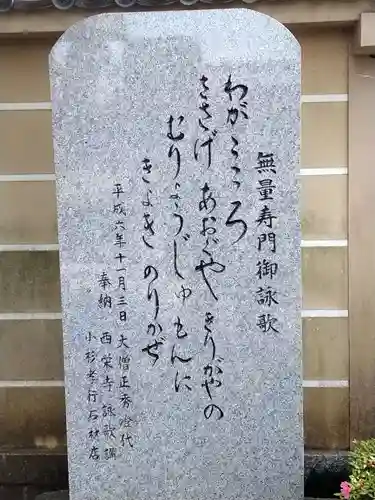 無量寿門御詠歌
わがこゝろ
さゝげ あおぐや きりがやの
むりょうじゅもんに
きよき のりかぜ
平成六年十一月三日 大僧正秀
奉納 西栄寺詠歌講
小杉孝行石材店